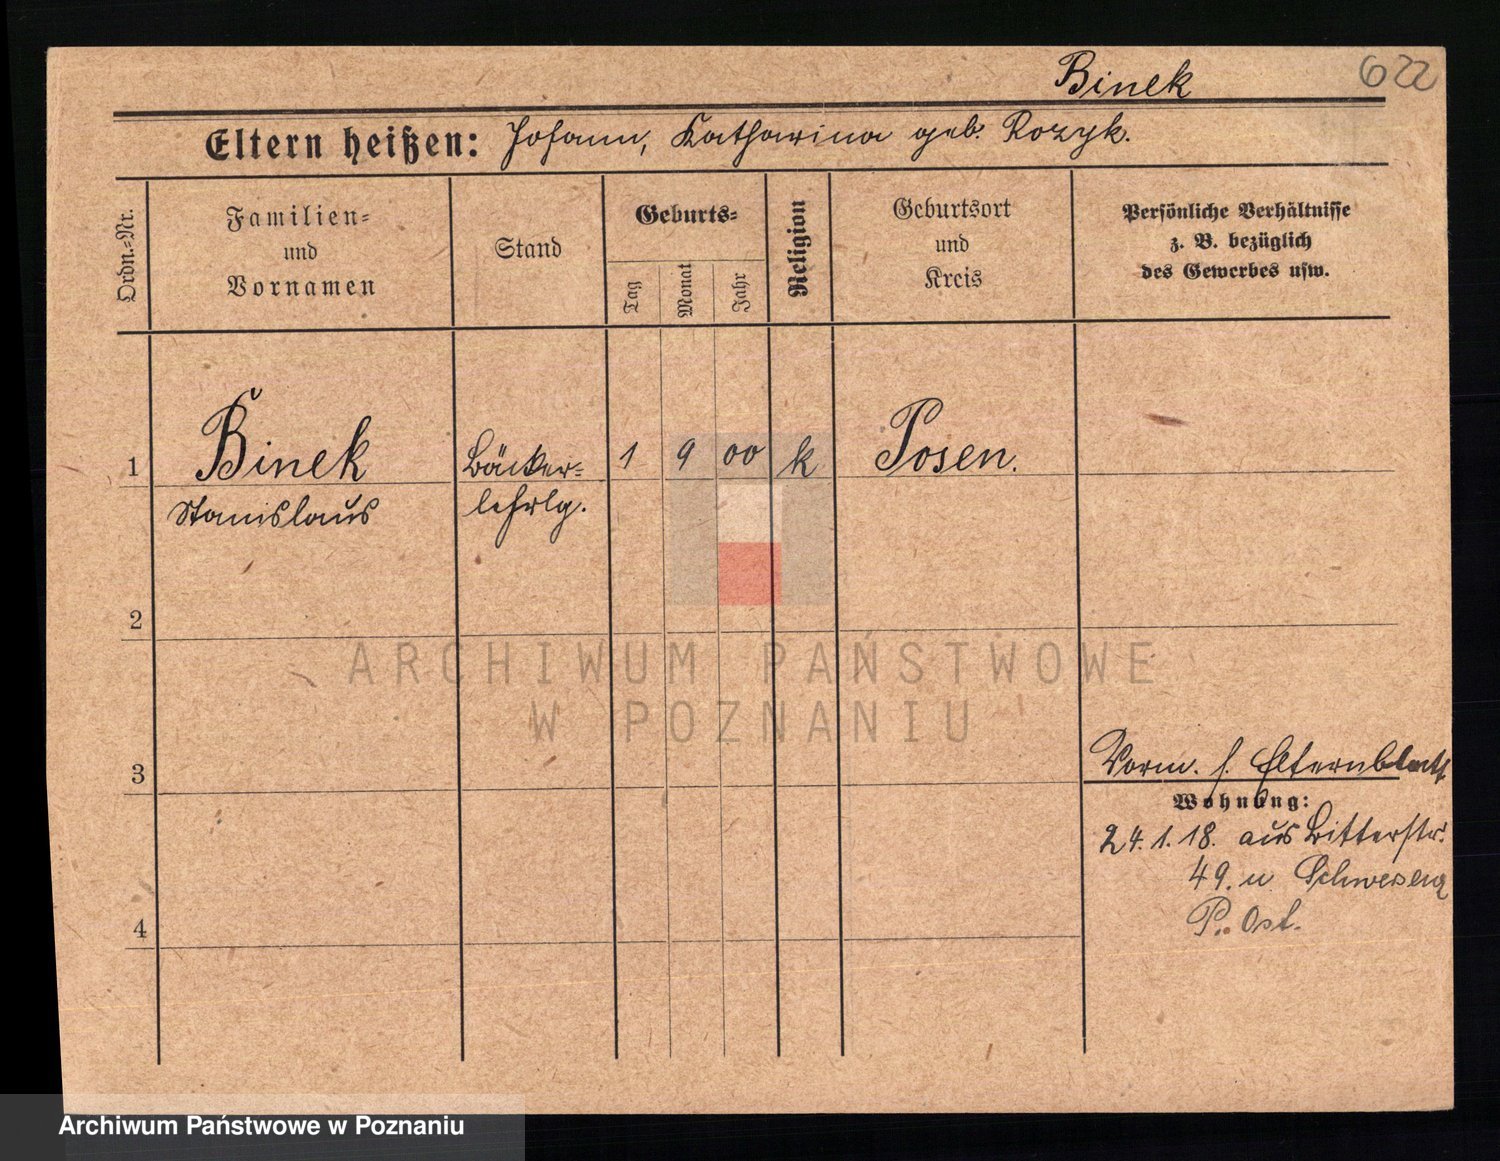 Binek
622
Eltern heißen: Johann, Katharina geb. Rozyk.
Ordn.=Nr.
Familien=
und
Vornamen
Stand
Geburts=
Tag
Monat
Jahr
Religion
Geburtsort
und
Kreis
Persönliche Verhältnisse
z. B. bezüglich
des Gewerbes usw.
1
Binek
Stanislaus
Bäcker=
lehrlg.
1 9 00
k
Posen.
2
3
4
Vorm. s. Elternblatt
Wohnung:
24.1.18. aus Ritterstr.
49. n Schwesenz
P.. Ost.
ARCHIWUM PAŃSTWOWE
W POZNANIU
Archiwum Państwowe w Poznaniu